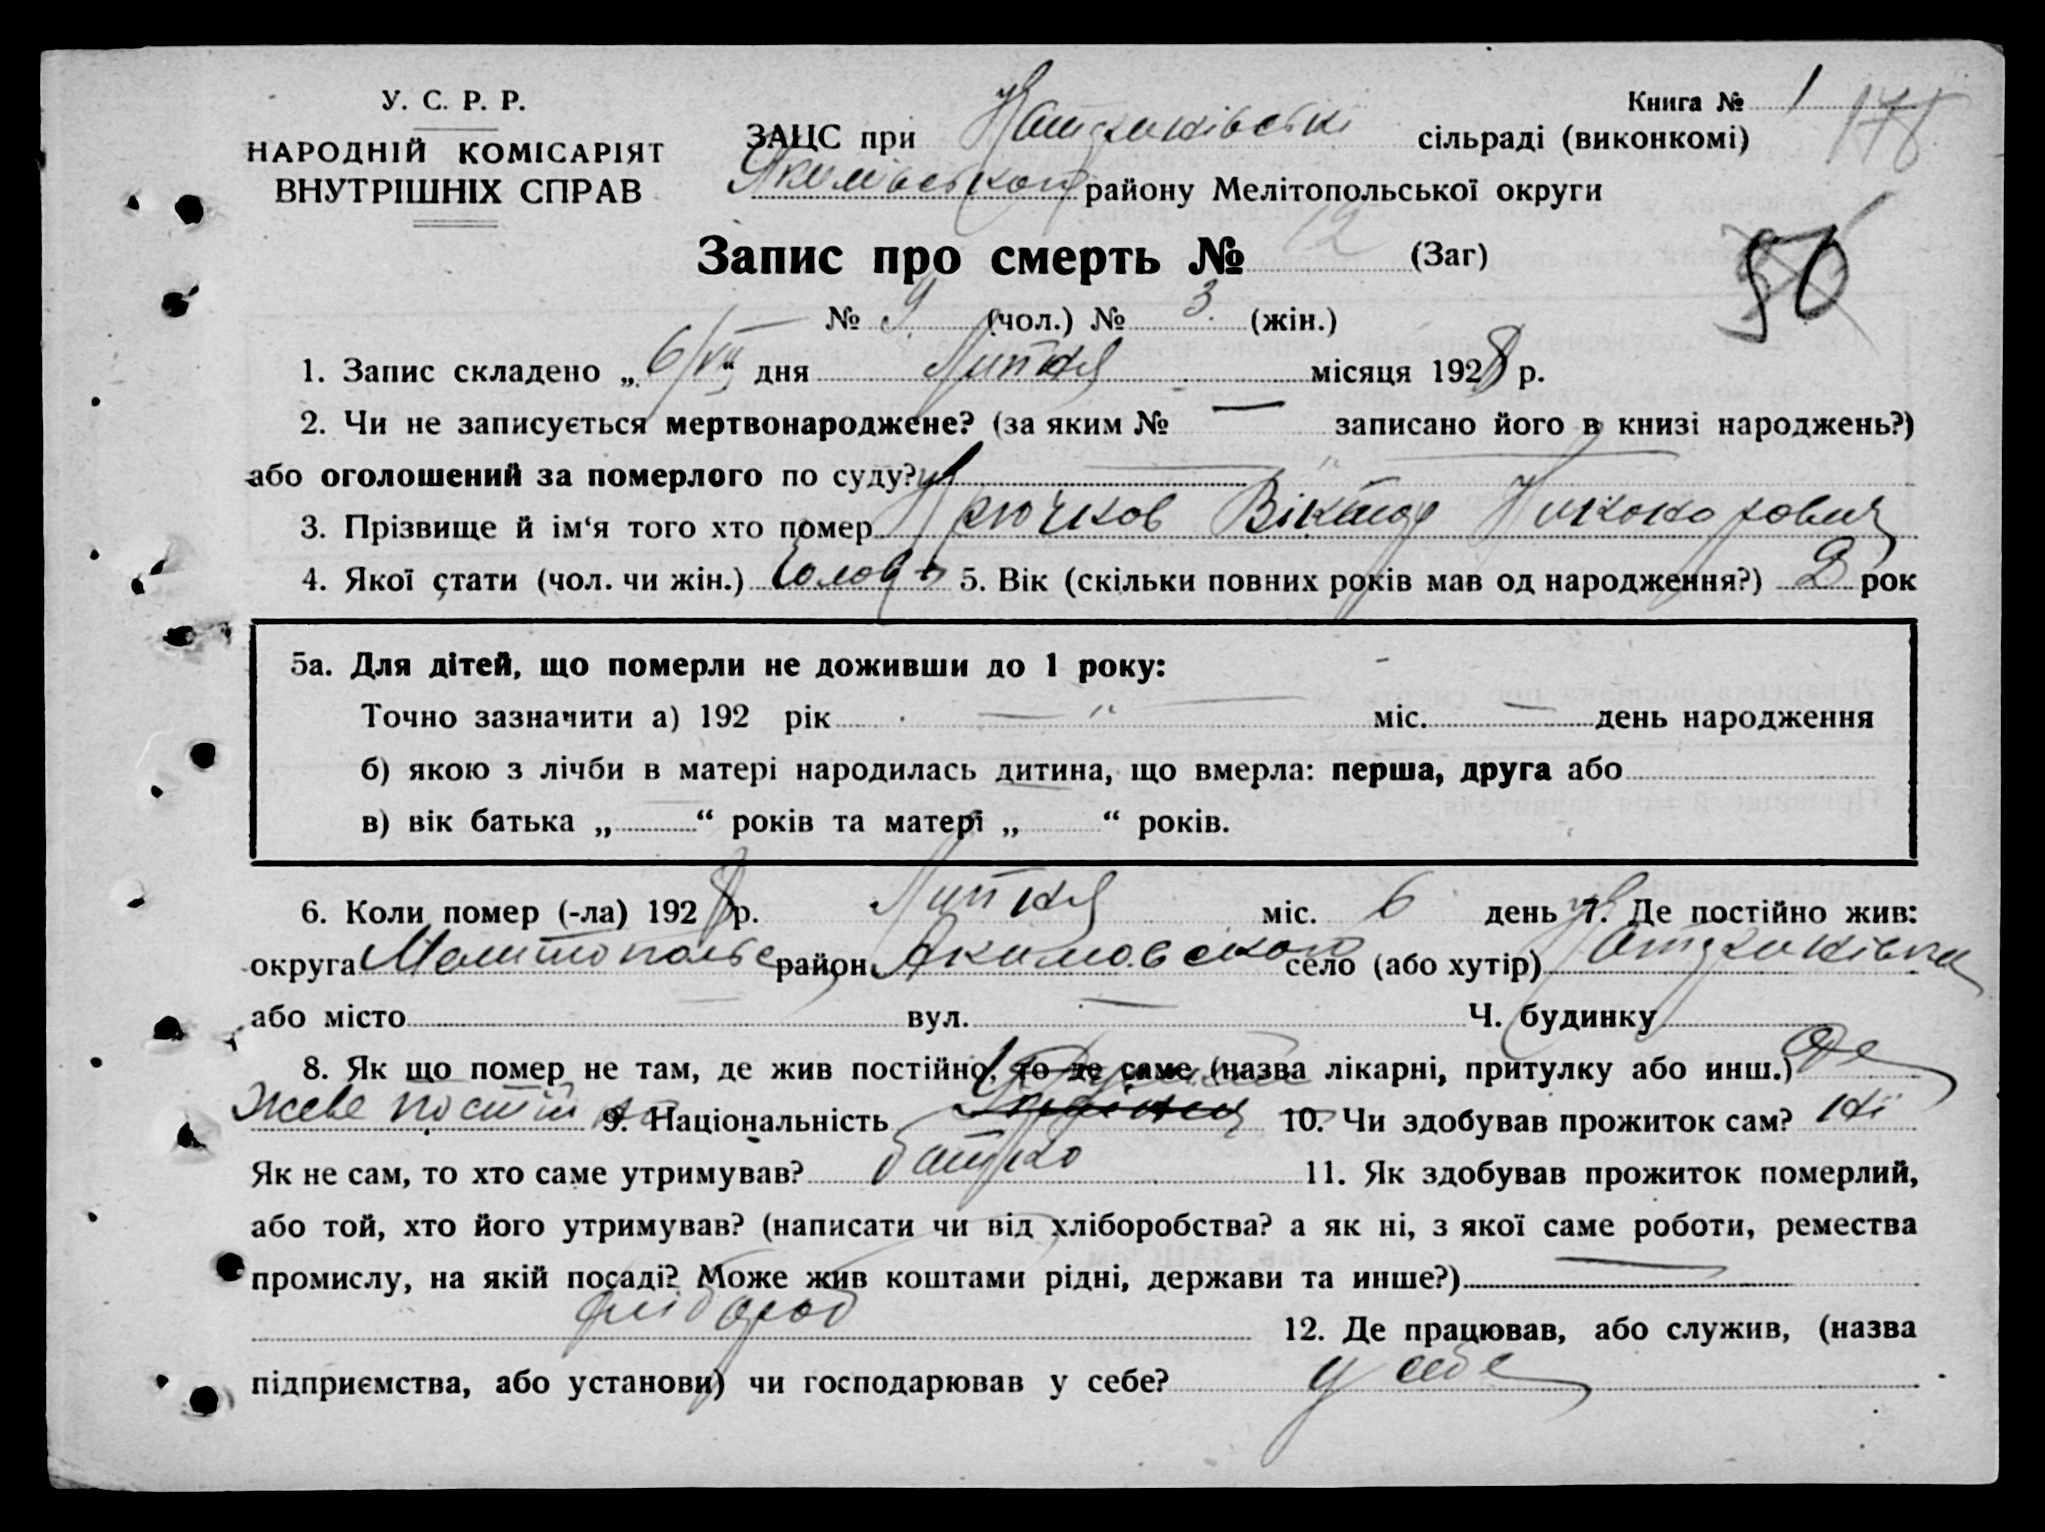 У. С. Р. Р.
НАРОДНІЙ КОМІСАРІЯТ
ВНУТРІШНІХ СПРАВ
Книга № 1
178
ЗАЦС при сільраді (виконкомі)
Якимівського району Мелітопольської округи
Запис про смерть № 12 (Заг)
56
№ 9 (чол.) № 3. (жін.)
1. Запис складено „ 6/VII “ дня Липня місяця 1928 р.
2. Чи не записується мертвонароджене? (за яким № — записано його в книзі народжень?)
або оголошений за померлого по суду?
3. Прізвище й ім‘я того хто помер Крючков Віктор Никонорович
4. Якої стати (чол. чи жін.) Голов 5. Вік (скільки повних років мав од народження?) 2 рок
5а. Для дітей, що померли не доживши до 1 року:
Точно зазначити а) 192 рік — „ — міс. — день народження
б) якою з лічби в матері народилась дитина, що вмерла: перша, друга або
в) вік батька „ “ років та матері „ “ років.
6. Коли помер (-ла) 1928 р. Липня міс. 6 день 7. Де постійно жив:
округа район Акимовского село (або хутір)
або місто вул. — Ч. будинку
8. Як що помер не там, де жив постійно, то де саме (назва лікарні, притулку або инш.) Де
живе постійно 9. Національність 10. Чи здобував прожиток сам? ні
Як не сам, то хто саме утримував? батько 11. Як здобував прожиток померлий,
або той, хто його утримував? (написати чи від хліборобства? а як ні, з якої саме роботи, ремества
промислу, на якій посаді? Може жив коштами рідні, держави та инше?) —
хлібороб 12. Де працював, або служив, (назва
підприємства, або установи) чи господарював у себе? у себе